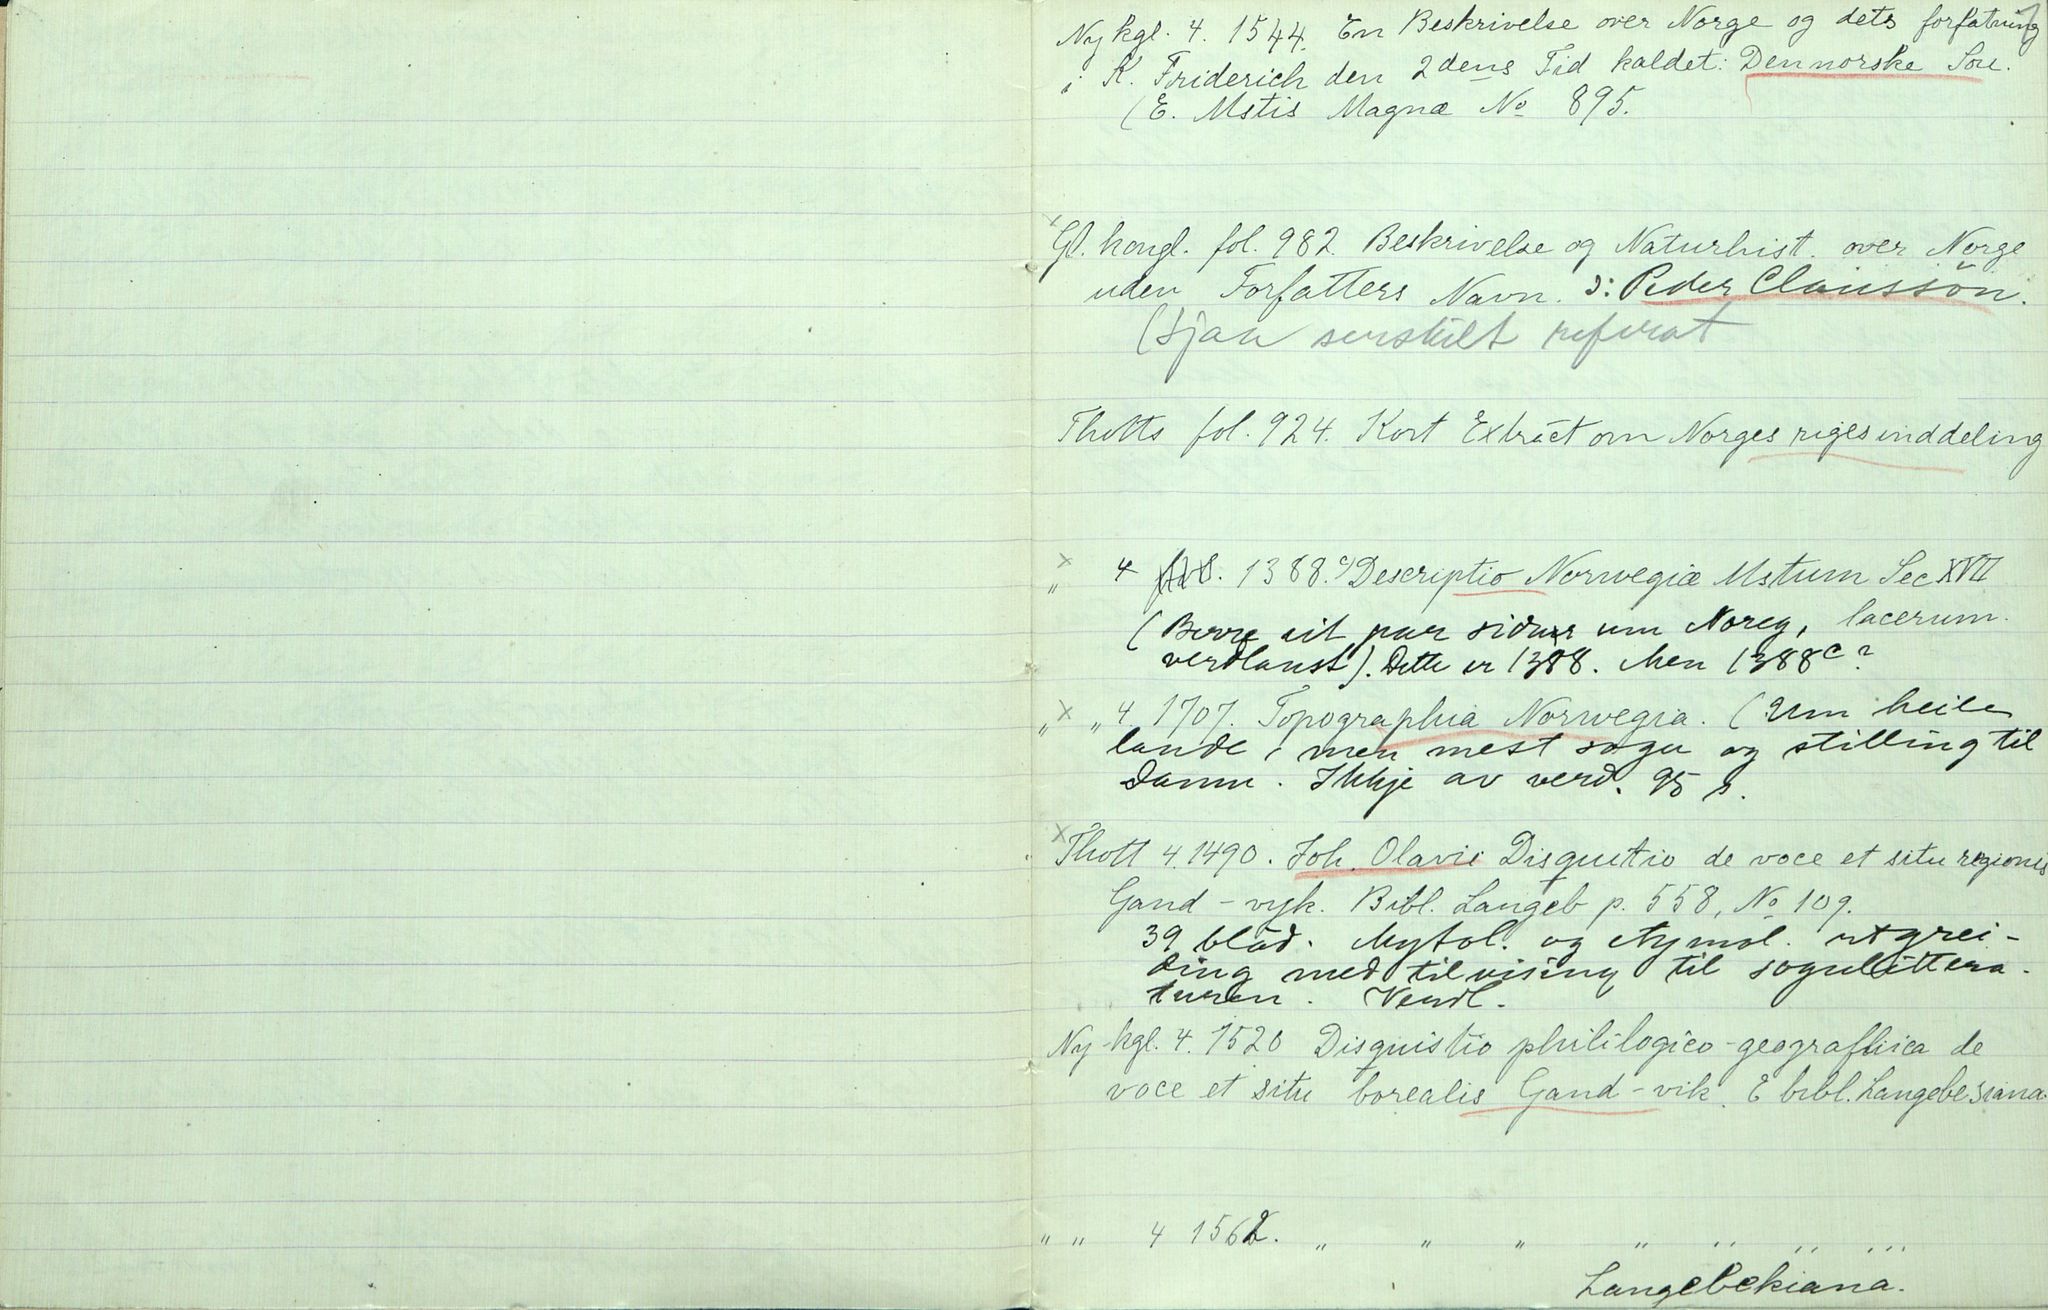 Ny kgl. 4. 1544. En Beskrivelse over Norge og dets forfatning
i K. Friderich den 2dens Tid kaldet: Den norske Soe.
(E. Mstis Magnæ No 895.
x Gl. kongl. fol. 982. Beskrivelse og Naturhist. over Norge
uden Forfatters Navn. ɔ: Peder Claussön.
(sjaa serskilt referat
Thotts fol. 924. Kort Extract om Norges riges inddeling
x „ 4 fol. 1388.c) Descriptio Norwegiæ Mstum Sec XVII
(Berre eit par sidur um Noreg, lacerum.
verdlaust). Dette er 1388. Men 1388c?
„ x „ 4. 1707. Topographia Norwegia. (Um heile
lande, men mest sogu og stilling til
Danm. Ikkje av verd. 95 s.
x Thott 4. 1490. Joh. Olavii Disquitio de voce et situ regionis
Gand-vyk. Bibl. Langeb p. 558, No 109.
39 blad. Mytol. og etymol. utgrei-
ding med tilvising til sogulittera-
turen. Verdl.
Ny kgl. 4. 1520 Disquistio phililogico-geografhica de
voce et situ borealis Gand-vik. E bibl. Langebesiana.
„ „ 4 1562. „ „ „ „ „ „ „
Langebekiana.